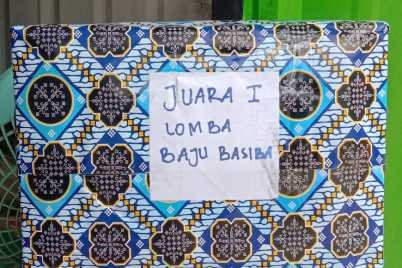 JUARA I
LOMBA
BAJU BASIBA